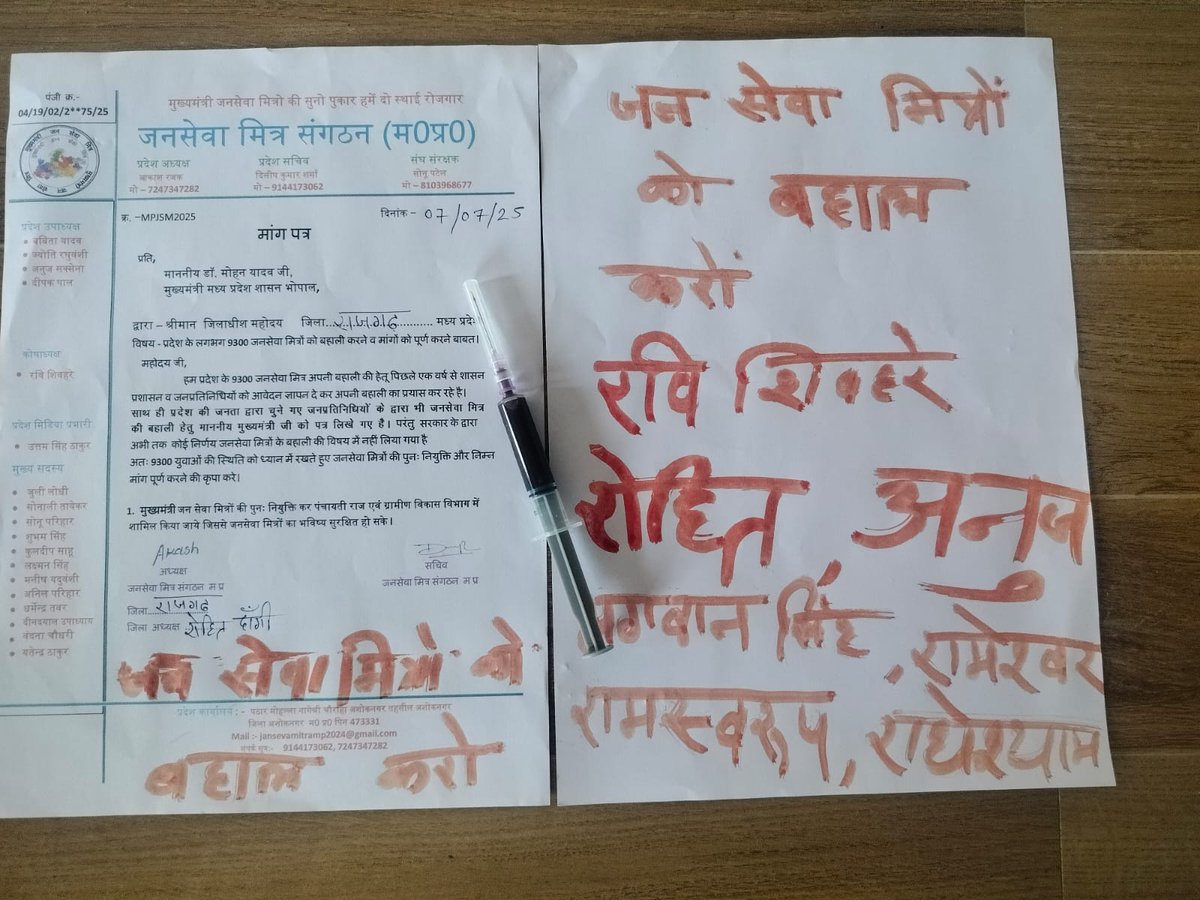 पंजी क्र.-
04/19/02/2**75/25
मुख्यमंत्री जनसेवा मित्रो की सुनो पुकार हमें दो स्थाई रोजगार
जनसेवा मित्र संगठन (म0प्र0)
प्रदेश अध्यक्ष
आकाश रजक
मो – 7247347282
प्रदेश सचिव
दिलीप कुमार शर्मा
मो – 9144173062
संघ संरक्षक
सोनू पटेल
मो -8103968677
क्र. –MPJSM2025
दिनांक- 07/07/25
मांग पत्र
प्रति,
माननीय डॉ. मोहन यादव जी,
मुख्यमंत्री मध्य प्रदेश शासन भोपाल,
द्वारा – श्रीमान जिलाधीश महोदय जिला...राजगढ़.......... मध्य प्रदे
विषय - प्रदेश के लगभग 9300 जनसेवा मित्रों को बहाली करने व मांगों को पूर्ण करने बाबत।
महोदय जी,
हम प्रदेश के 9300 जनसेवा मित्र अपनी बहाली की हेतू पिछले एक वर्ष से शासन
प्रशासन व जनप्रतिनिधियों को आवेदन ज्ञापन दे कर अपनी बहाली का प्रयास कर रहे है।
साथ ही प्रदेश की जनता द्वारा चुने गए जनप्रतिनिधियों के द्वारा भी जनसेवा मित्र
की बहाली हेतु माननीय मुख्यमंत्री जी को पत्र लिखे गए है। परंतु सरकार के द्वारा
अभी तक कोई निर्णय जनसेवा मित्रों के बहाली की विषय में नहीं लिया गया है
अतः 9300 युवाओं की स्थिति को ध्यान में रखते हुए जनसेवा मित्रों की पुनः नियुक्ति और निम्न
मांग पूर्ण करने की कृपा करे।
1. मुख्यमंत्री जन सेवा मित्रों की पुनः नियुक्ति कर पंचायती राज एवं ग्रामीण विकास विभाग में
शामिल किया जाये जिससे जनसेवा मित्रों का भविष्य सुरक्षित हो सके।
Akash
अध्यक्ष
जनसेवा मित्र संगठन म प्र
सचिव
जनसेवा मित्र संगठन म प्र
जिला...राजगढ़
जिला अध्यक्ष रोहित दाँगी
प्रदेश उपाध्यक्ष
बबिता यादव
ज्योति रघुवंशी
अनुज सक्सेना
दीपक पाल
कोषाध्यक्ष
रवि शिवहरे
प्रदेश मिडिया प्रभारी
उत्तम सिंह ठाकुर
मुख्य सदस्य
जुली लोधी
सोनाली ठावेकर
सोनू परिहार
शुभम सिंह
कुलदीप साहू
लक्ष्मन सिंह
मनीष यदुवंशी
अनिल परिहार
धर्मेन्द्र तवर
दीनदयाल उपाध्याय
वंदना चौधरी
यतेन्द्र ठाकुर
जन सेवा मित्रो को
प्रदेश कार्यालय :- पठार मोहल्ला गायत्री चौराहा अशोकनगर तहसील अशोकनगर
जिला अशोकनगर म0 प्र0 पिन 473331
Mail :- jansevamitramp2024@gmail.com
संपर्क सूत्र:- 9144173062, 7247347282
बहाल करो
जन सेवा मित्रों
को बहाल
करों
रवि शिवहरे
रोहित अनुज
भगवान सिंह, रामेश्वर
रामस्वरूप, राधेश्याम